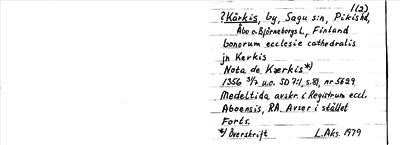 1(2)
?Kårkis, by, Sagu s:n, Pikishd,
Åbo o. Björneborgs L, Finland
bonorum ecclesie cathedralis
jn Kerkis
Nota de Kærkis*)
1356 3/2 u.o. SD 7:1, s.81, nr 5629
Medeltida avskr. i Registrum eccl.
Aboensis, RA. Avser i stället
Forts.
*) Överskrift L.Aks. 1979